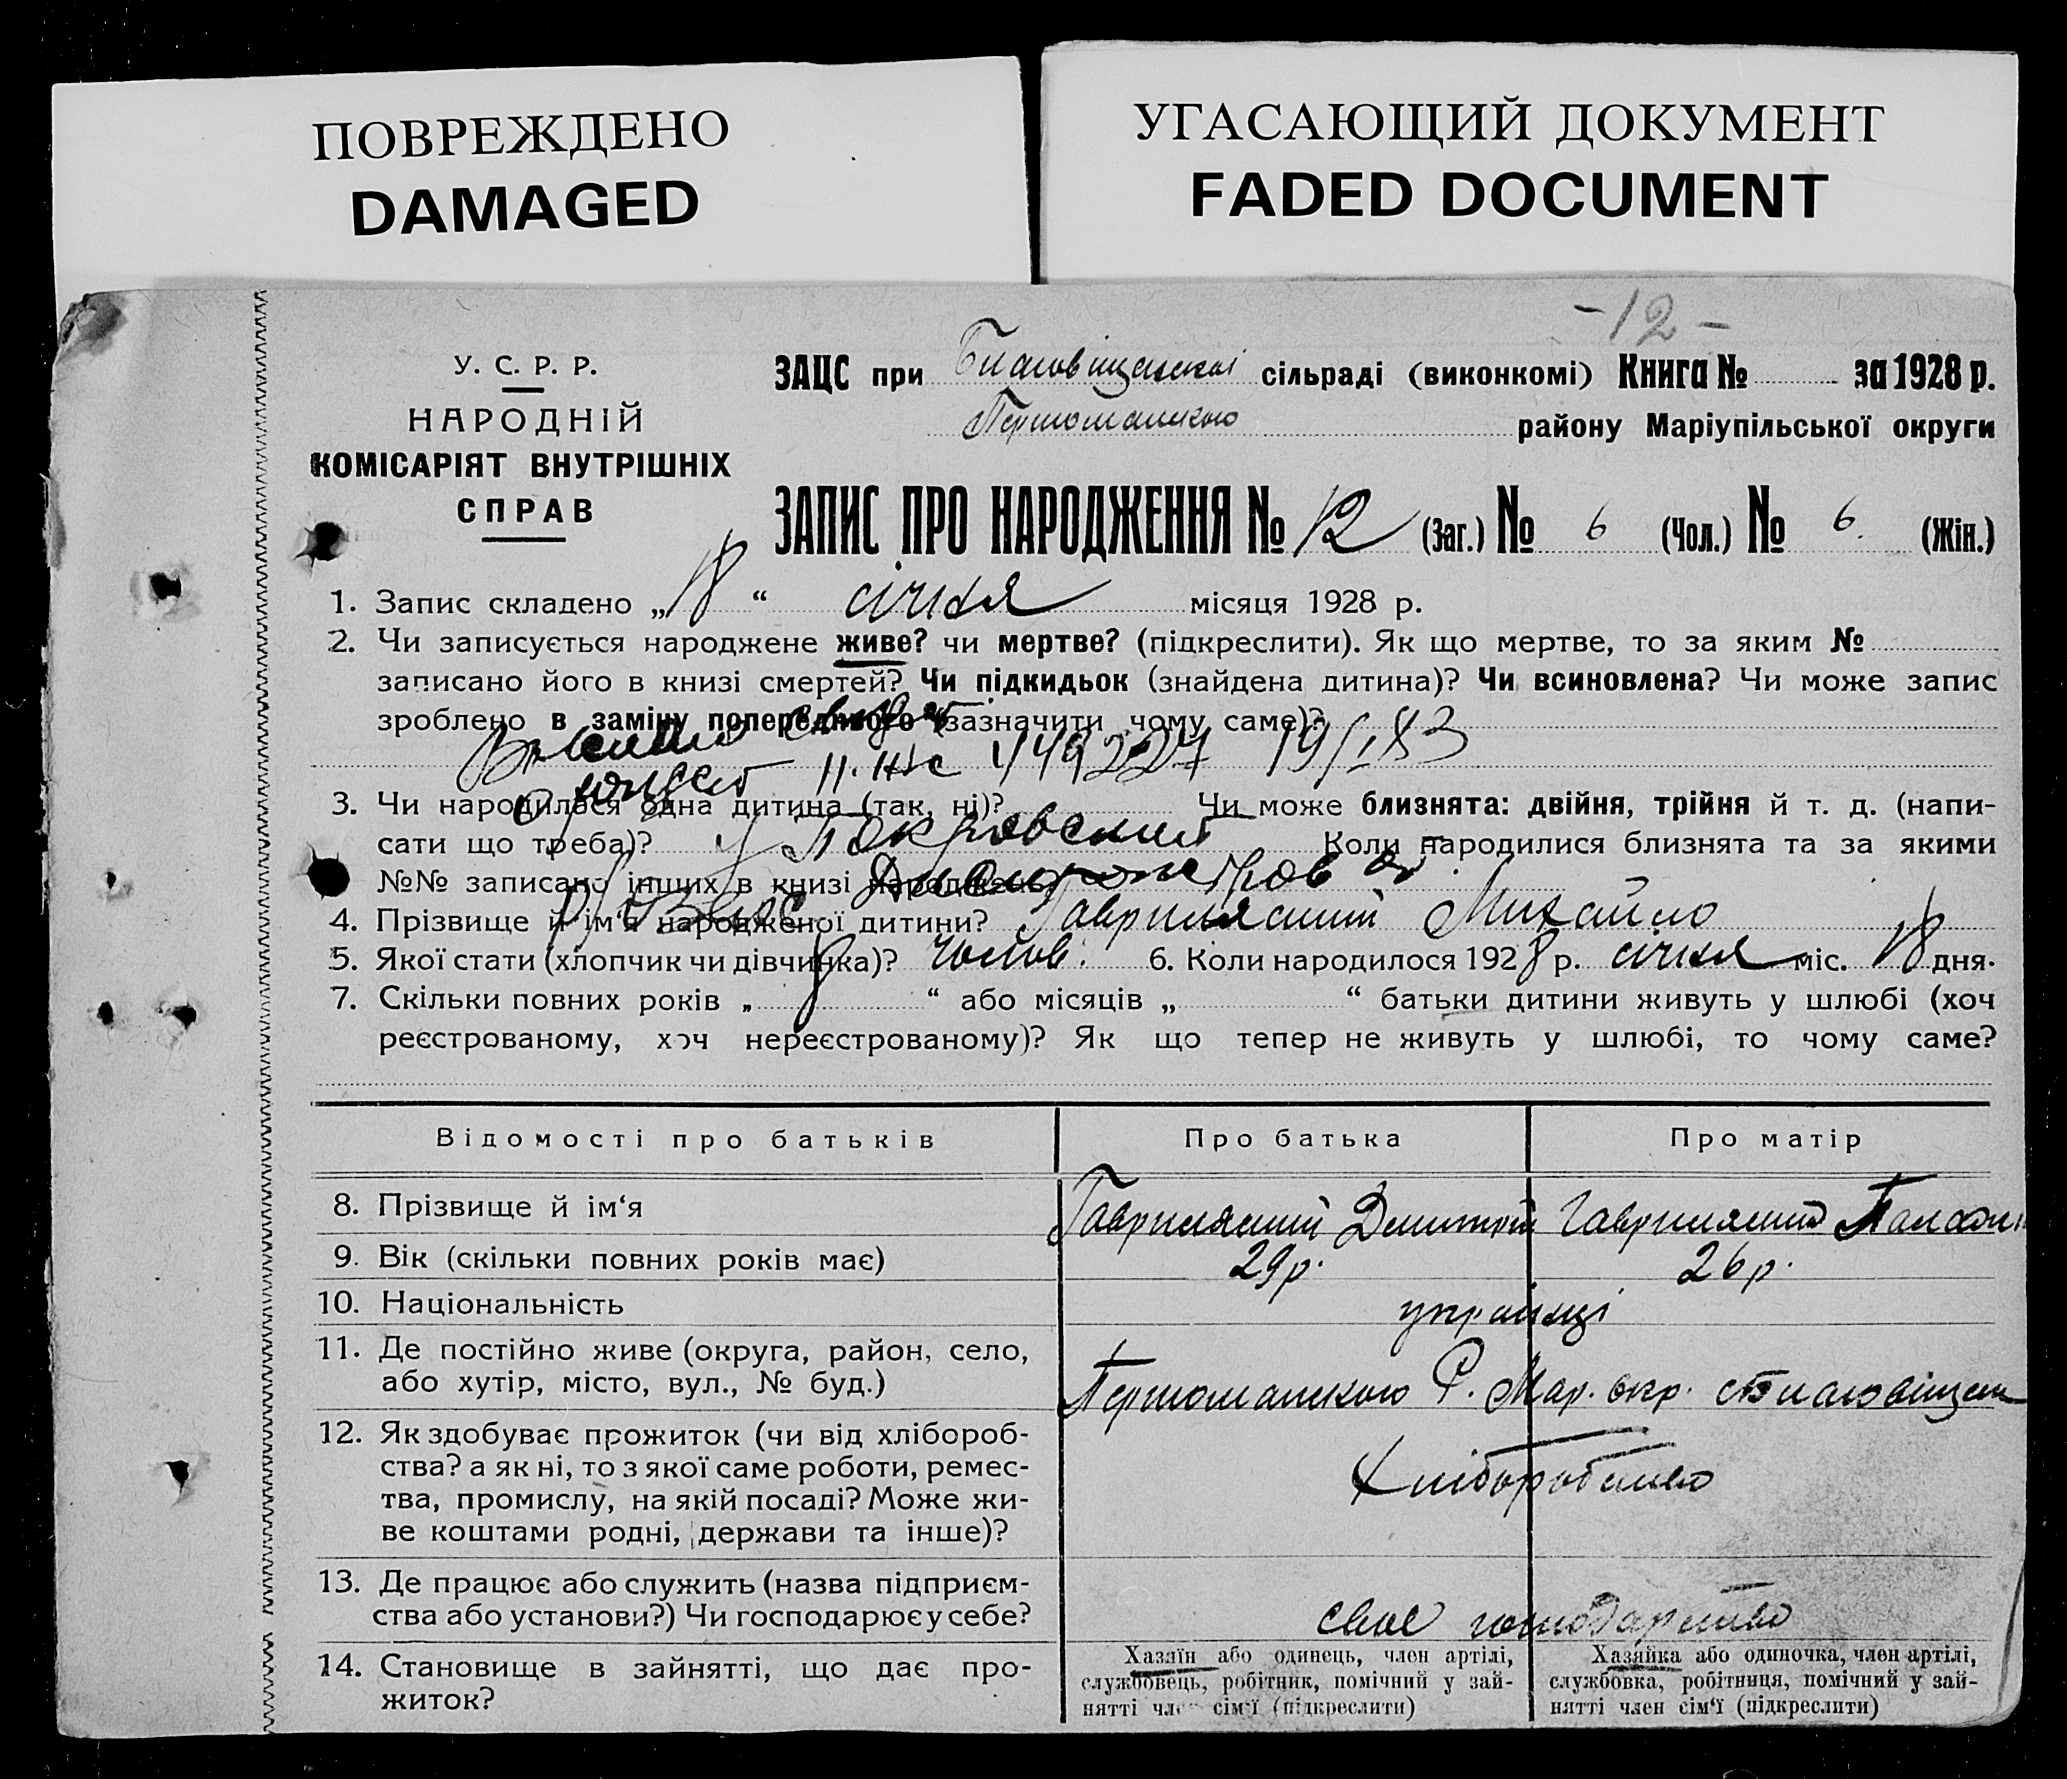 ПОВРЕЖДЕНО
DAMAGED
УГАСАЮЩИЙ ДОКУМЕНТ
FADED DOCUMENT
-12-
У. С. Р. Р.
НАРОДНІЙ
КОМІСАРІЯТ ВНУТРІШНІХ
СПРАВ
ЗАЦС при сільраді (виконкомі) Книга № за 1928 р.
району Маріупільської округи
ЗАПИС ПРО НАРОДЖЕННЯ № 12 (Заг.) № 6 (Чол.) № 6. (Жін.)
1. Запис складено „18“ січня місяця 1928 р.
2. Чи записується народжене живе? чи мертве? (підкреслити). Як що мертве, то за яким №
записано його в книзі смертей? Чи підкидьок (знайдена дитина)? Чи всиновлена? Чи може запис
зроблено в заміну попереднього (зазначити чому саме)?
449227
3. Чи народилася одна дитина (так, ні)? Чи може близнята: двійня, трійня й т. д. (напи-
сати що треба)? Покровский Коли народилися близнята та за якими
№№ записано інших в книзі народжень
4. Прізвище й ім‘я народженої дитини? Гаврилящий Михайло
5. Якої стати (хлопчик чи дівчинка)? чолов. 6. Коли народилося 1928 р. січня міс. 18 дня.
7. Скільки повних років „ 8 “ або місяців „ “ батьки дитини живуть у шлюбі (хоч
реєстрованому, хоч нереєстрованому)? Як що тепер не живуть у шлюбі, то чому саме?
Відомості про батьків Про батька Про матір
8. Прізвище й ім‘я Гаврилящий Дмитрій Гаврилящий
9. Вік (скільки повних років має) 29 р. 26 р.
10. Національність українці
11. Де постійно живе (округа, район, село,
або хутір, місто, вул., № буд.) Р. Мар. окр.
12. Як здобуває прожиток (чи від хлібороб-
ства? а як ні, то з якої саме роботи, ремес-
тва, промислу, на якій посаді? Може жи-
ве коштами родні, держави та інше)?
Хліборобство
13. Де працює або служить (назва підприєм-
ства або установи?) Чи господарює у себе? своє господарство
14. Становище в зайнятті, що дає про-
житок?
Хазяїн або одинець, член артілі,
службовець, робітник, помічний у зай-
нятті член сім‘ї (підкреслити)
Хазяйка або одиночка, член артілі,
службовка, робітниця, помічний у зай-
нятті член сім‘ї (підкреслити)